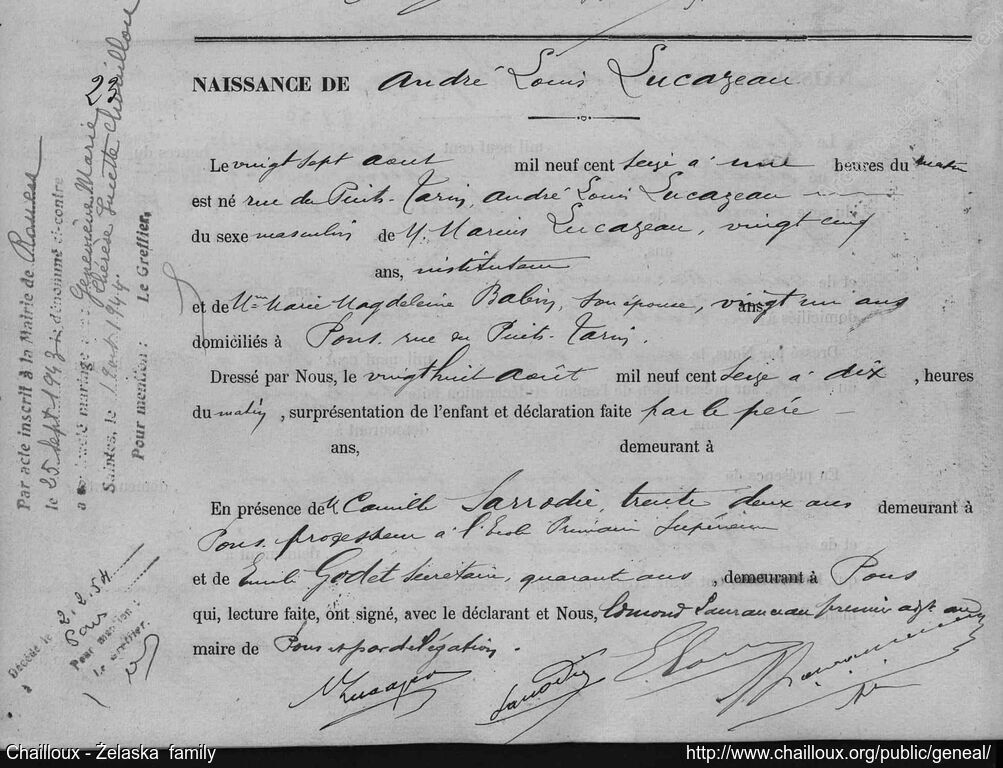 NAISSANCE DE André Louis Lucazeau
Le vingt sept août mil neuf cent seize à une heures du matin
est né rue du Puits-Tarin, André Louis Lucazeau
du sexe masculin de M. Marius Lucazeau, vingt cinq
ans, instituteur
et de Mme Marie Magdeleine Babin, son épouse, vingt un ans
domiciliés à Pons, rue du Puits-Tarin.
Dressé par Nous, le vingt huit août mil neuf cent seize à dix, heures
du matin, sur présentation de l'enfant et déclaration faite par le père
ans, demeurant à
En présence de M Camille Sarrodie, trente deux ans demeurant à
Pons, professeur à l'Ecole Primaire Supérieure
et de Emile Godet secrétaire, quarante ans, demeurant à Pons
qui, lecture faite, ont signé, avec le déclarant et Nous, Edmond premier adjt au
maire de Pons et par délégation.
M Lucazeau
Sarrodie
23
Par acte inscrit à la Mairie de Rouen
le 25 sept. 1943 dénommé ci-contre
a contracté mariage Geneviève Marie
Thérèse Lucette
Saintes, le 1944.
Pour mention : Le Greffier,
Décédé le 2.2.54
à Paris
Pour mention
le greffier.
Chailloux - Żelaska family
http://www.chailloux.org/public/geneal/